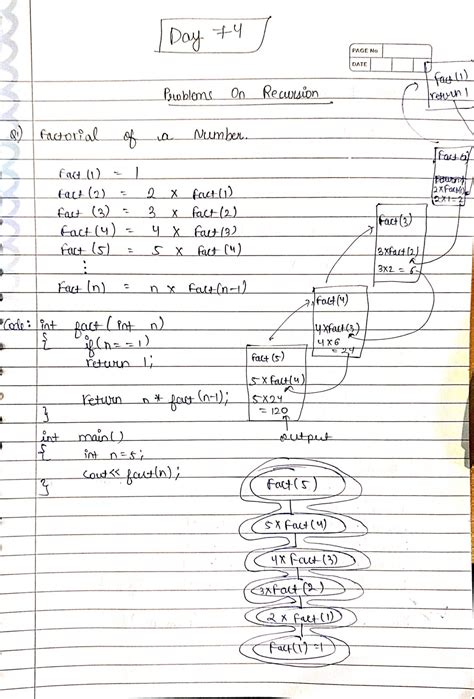 Day 74
PAGE No
DATE
Problems On Recursion
Q1) Factorial of a Number.
Fact(1) = 1
Fact(2) = 2 x Fact(1)
Fact(3) = 3 x Fact(2)
Fact(4) = 4 x Fact(3)
Fact(5) = 5 x Fact(4)
⋮
Fact(n) = n x Fact(n-1)
Code: int fact(int n)
{
if(n==1)
return 1;
return n * fact(n-1);
}
int main()
{
int n=5;
cout<< fact(n);
}
Fact(1)
return 1
Fact(2)
2xFact(1)
2x1=2
Fact(3)
3xFact(2)
3x2 = 6
Fact(4)
4xFact(3)
4x6
= 24
Fact(5)
5xFact(4)
5x24
= 120
output
Fact(5)
5xFact(4)
4xFact(3)
3xFact(2)
2 x Fact(1)
Fact(1) =1